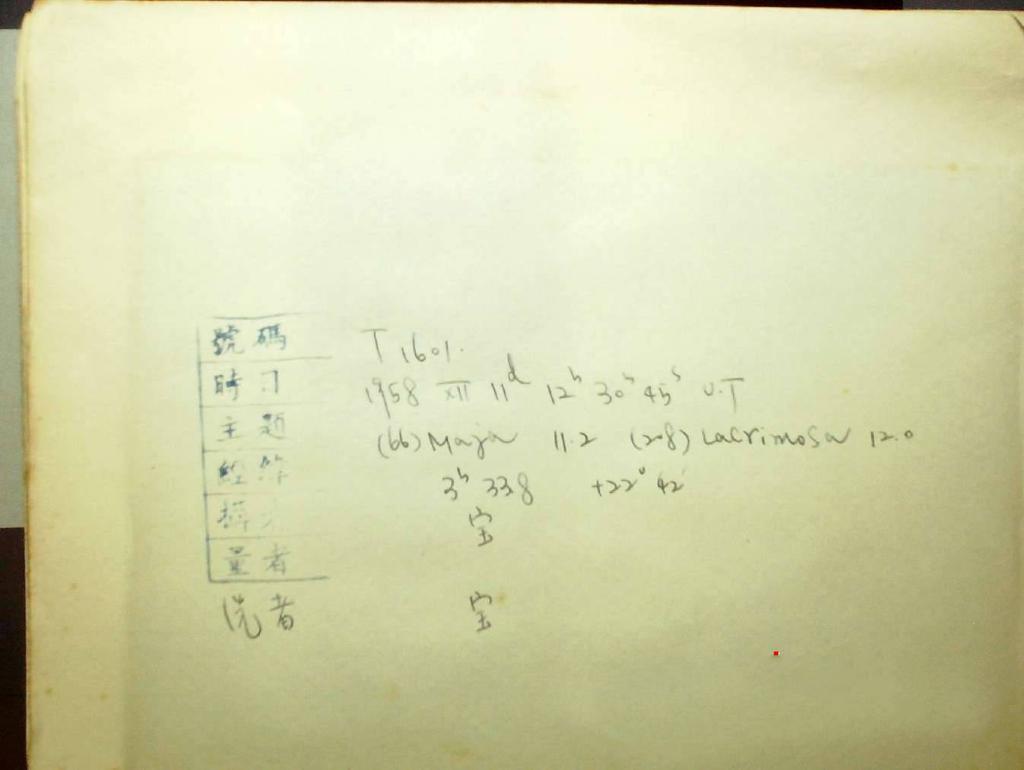 號碼 T 1601.
時刻 1958 XII 11d 12h 30m 45s U.T
主題 (66) Maja 11.2 (208) Lacrimosa 12.0
經緯 3h 33.8 +22° 42'
攝者 宝
量者
洗者 宝